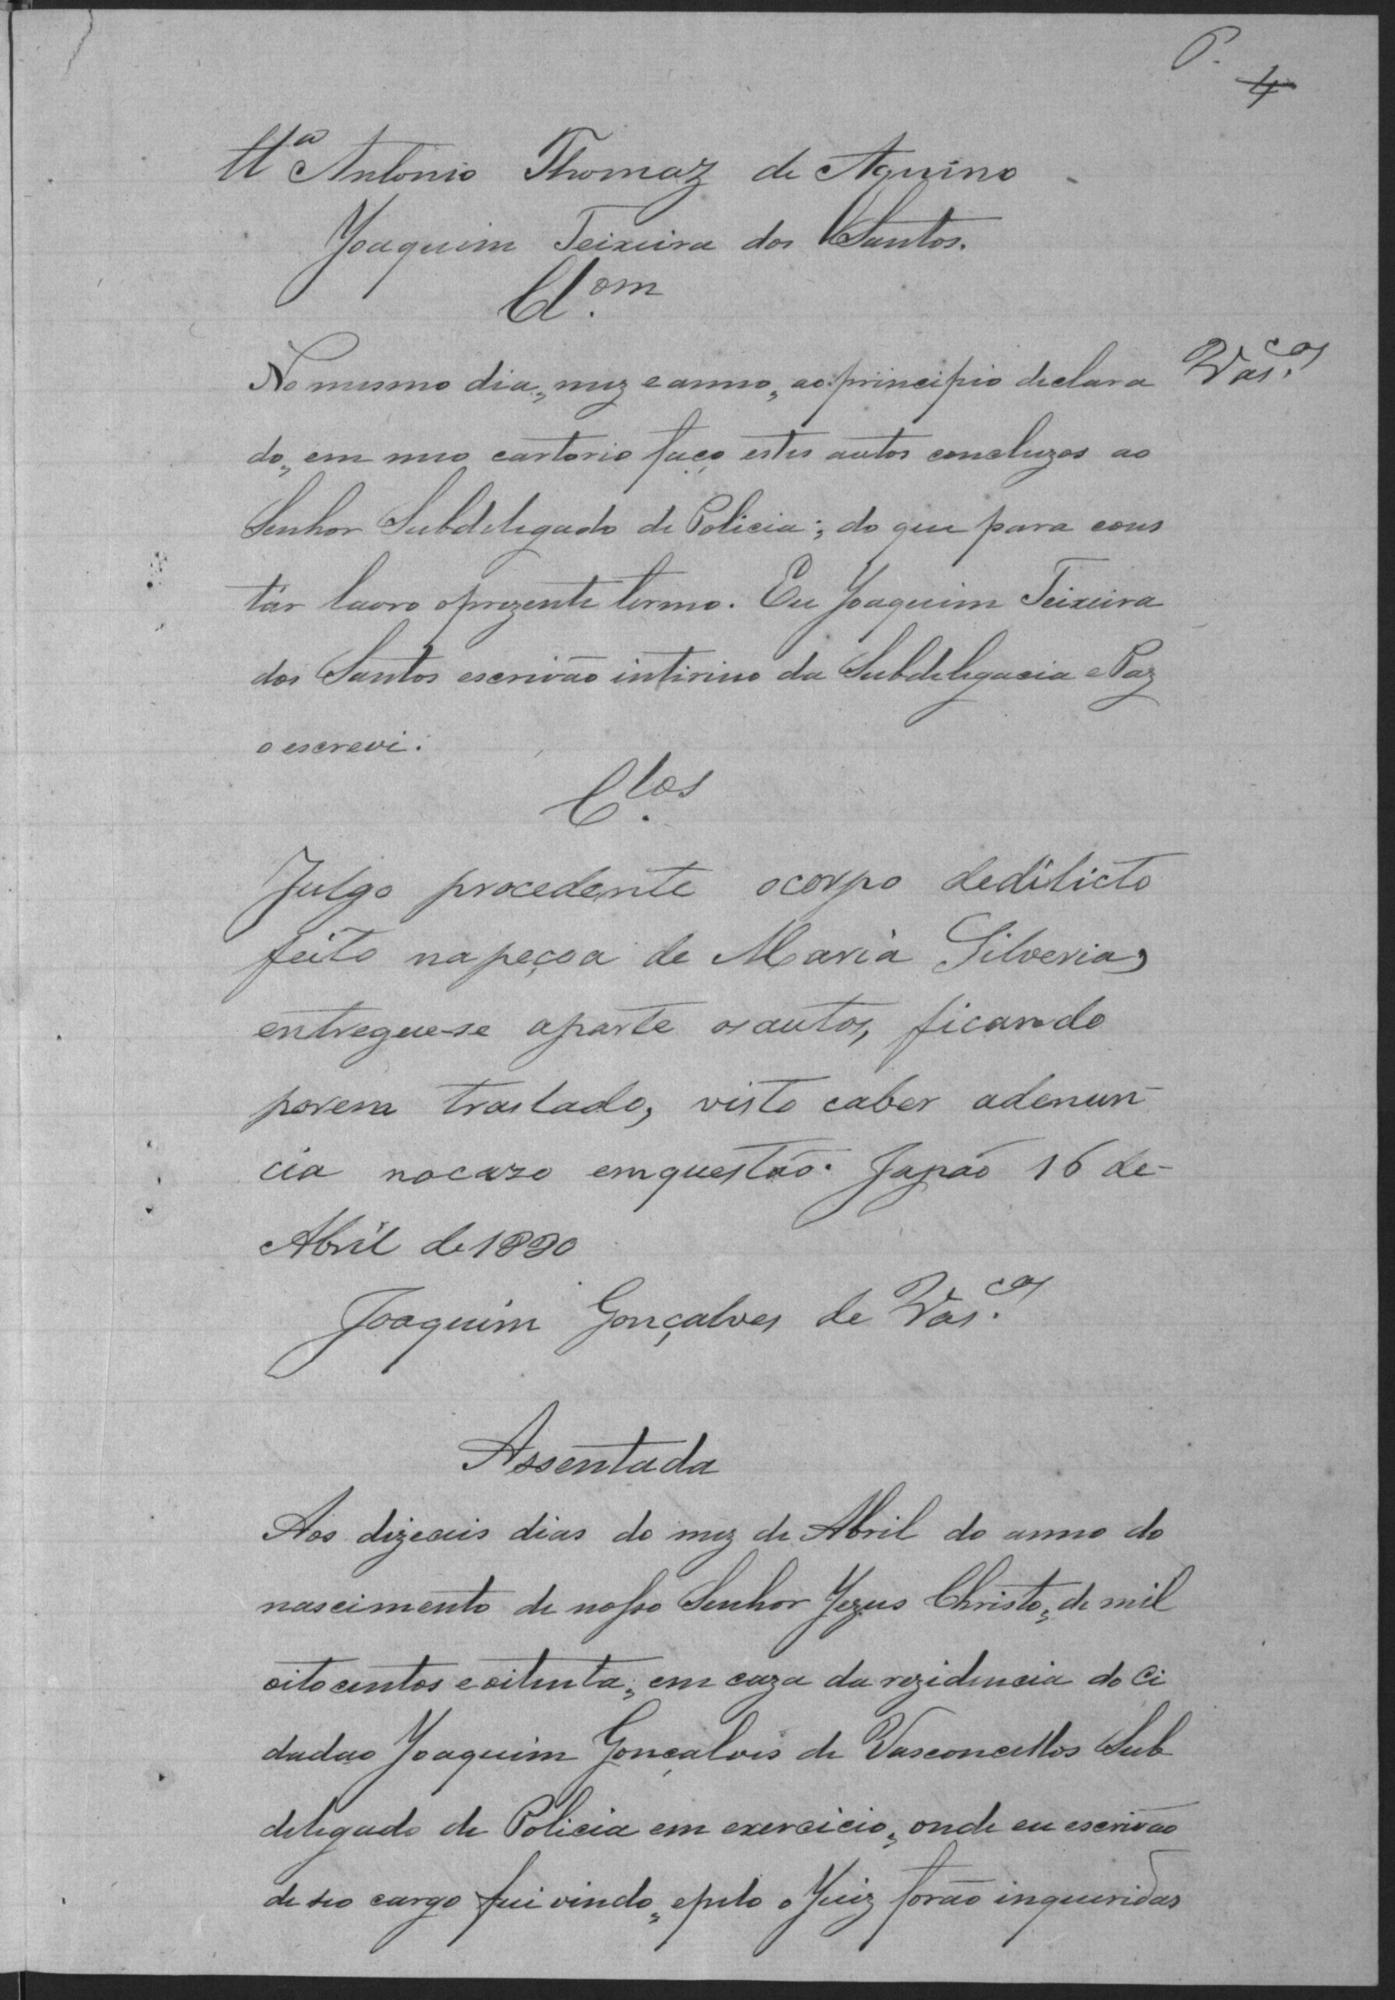 6.
4
Tta Antonio Thomaz de Aquino
Joaquim Teixeira dos Santos.
Cl.om
No mismo dia, mez e anno, ao principio declara
Vas.cos
do, em meo cartorio faço estes autos concluzos ao
Senhor Subdelegado de Policia; do que para cons
tár lavro o prezente termo. Eu Joaquim Teixeira
dos Santos escrivão intirino da Subdelegacia e Paz
o escrevi.
C.los
Julgo procedente o corpo de dilicto
feito na peçoa de Maria Silveria,
entregue-se aparte os autos, ficando
porem traslado, visto caber a denun
cia no cazo em questão. Japão 16 de
Abril de 1880
Joaquim Gonçalves de Vas.cos
Assentada
Aos dizeceis dias do mez de Abril do anno do
nascimento de nosso Senhor Jezus Christo, de mil
oito centos e oitenta, em caza da rezidencia do Ci
dadao Joaquim Gonçalves de Vasconcellos Sub
delegado de Policia em exercicio, onde eu escrivão
de seo cargo fui vindo, e pelo o Juiz forão inqueridas